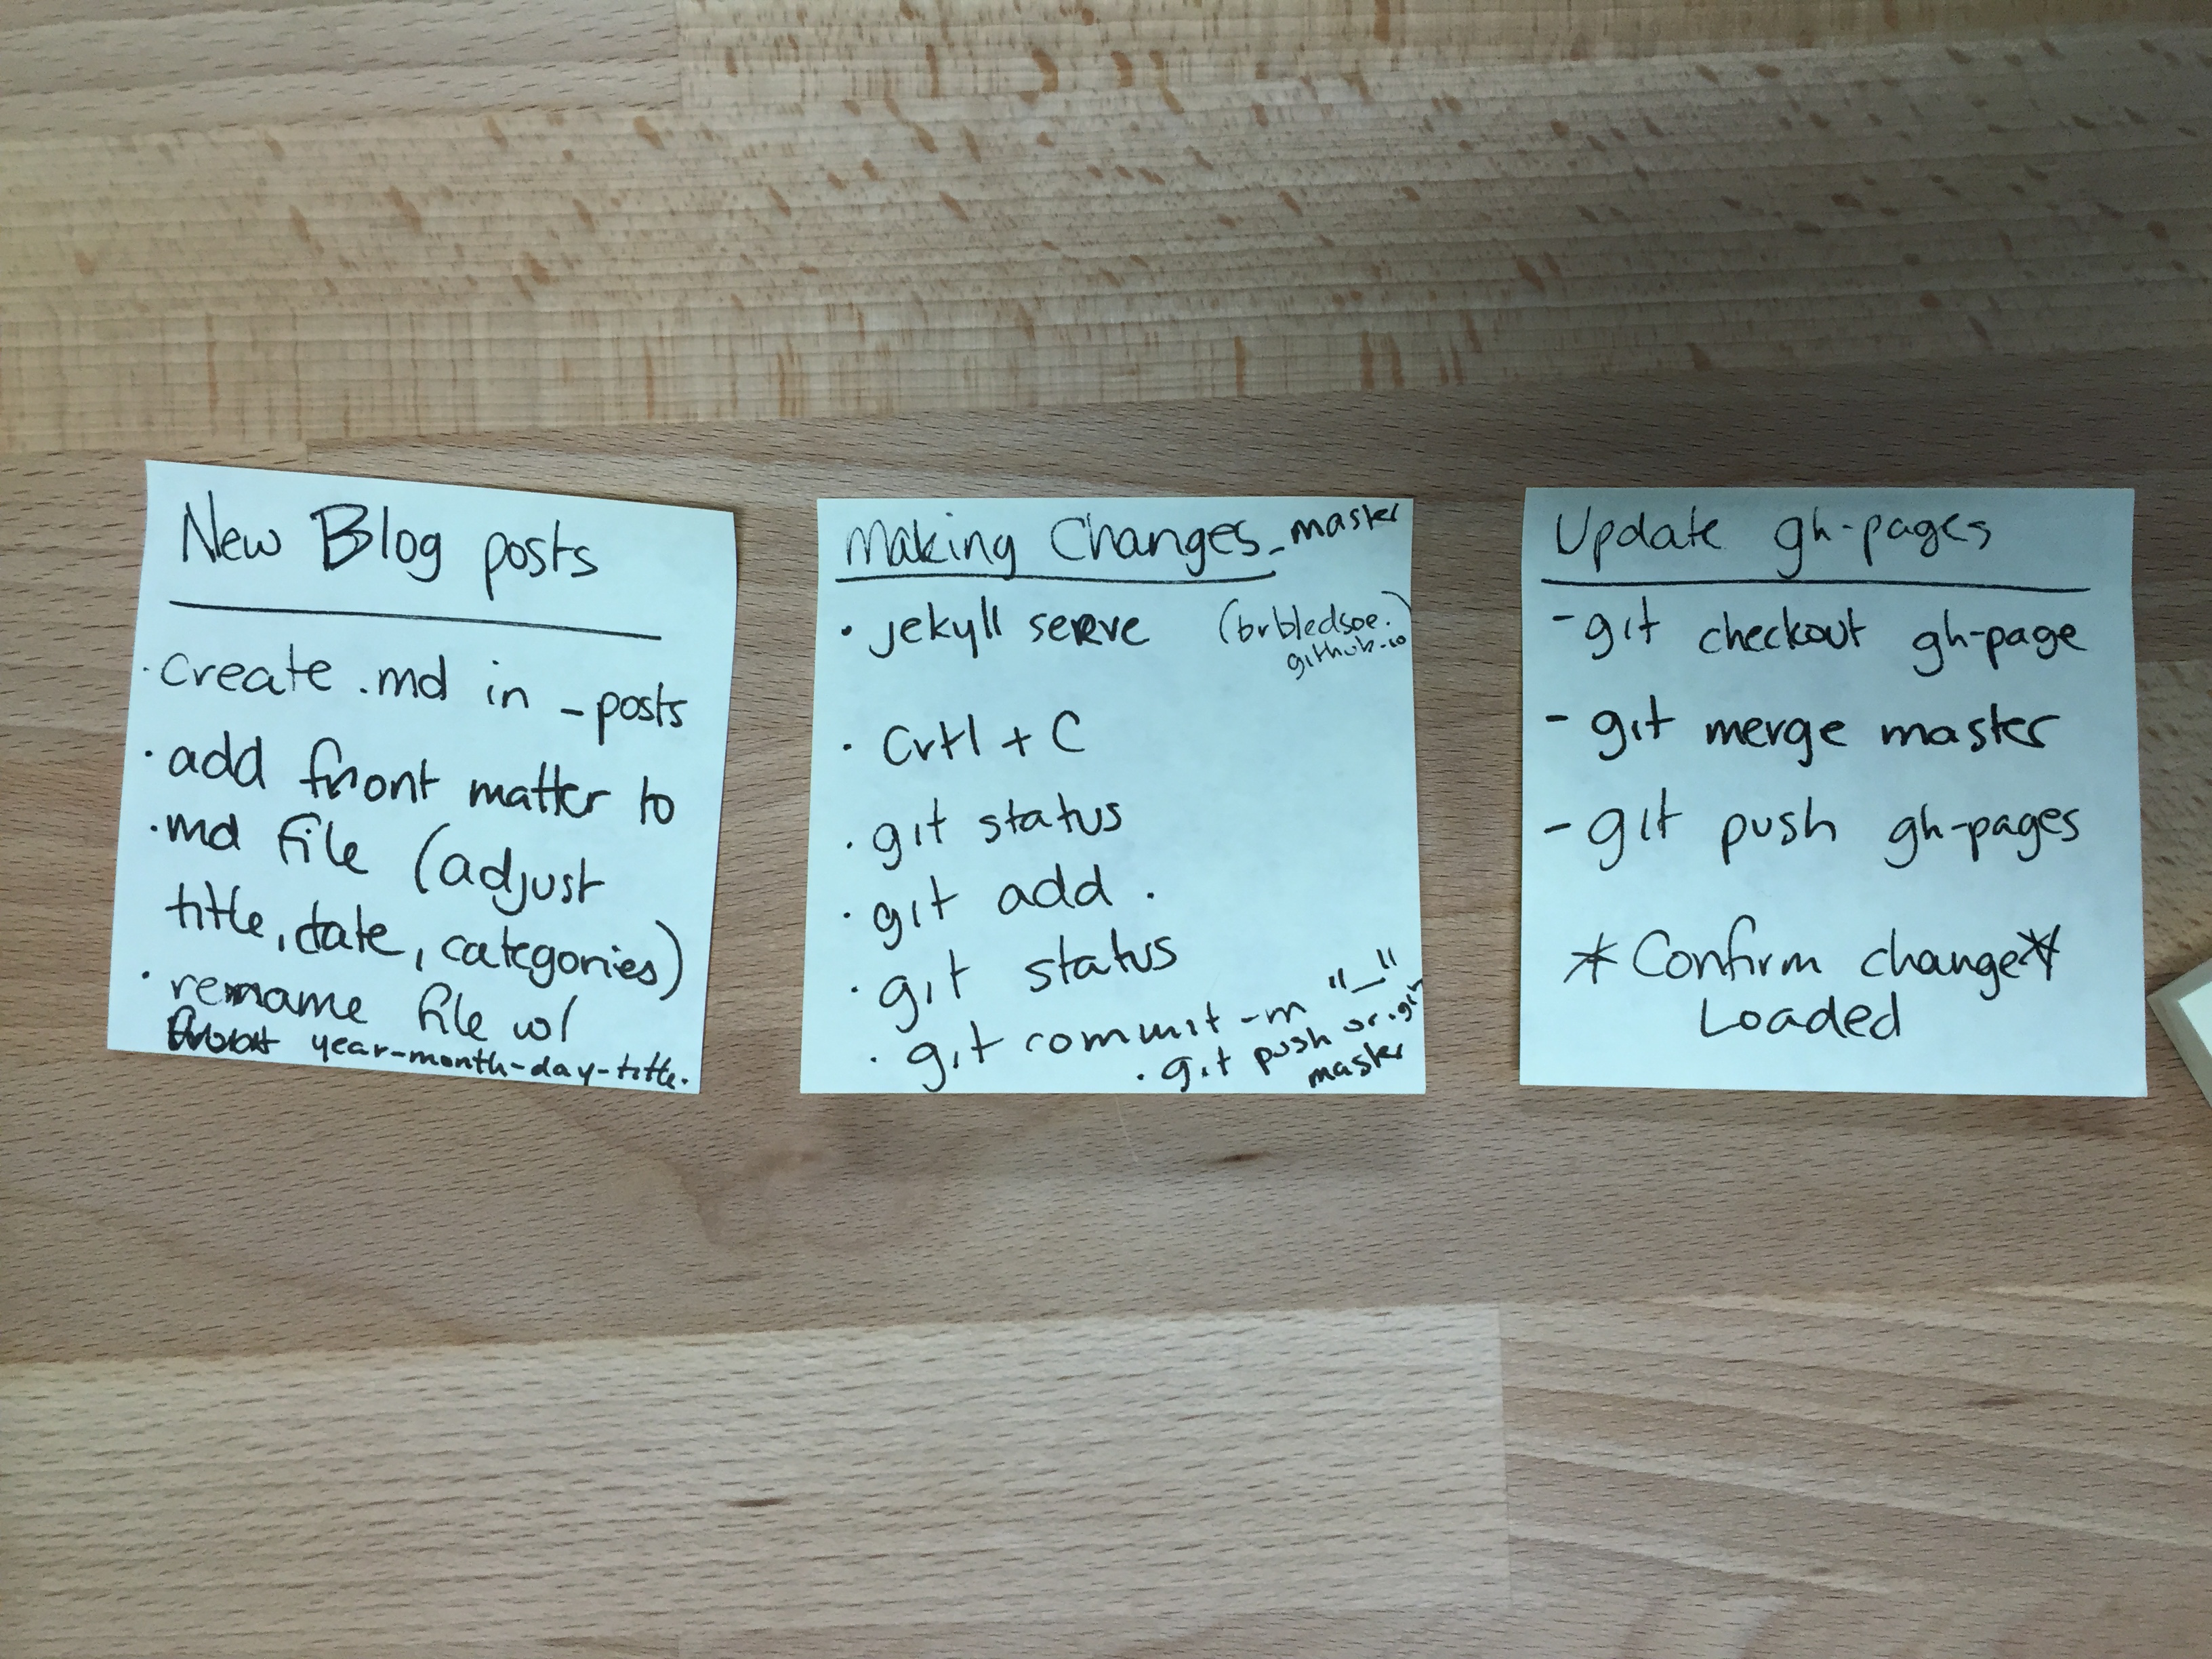 New Blog posts
· create .md in _posts
· add front matter to
.md file (adjust
title, date, categories)
· rename file w/
year-month-day-title.
Making Changes - master
· jekyll serve (brbledsoe.
github.io)
· Crtl + C
· git status
· git add .
· git status
· git commit -m "_"
· git push origin
master
Update gh-pages
- git checkout gh-page
- git merge master
- git push gh-pages
* Confirm change *
Loaded